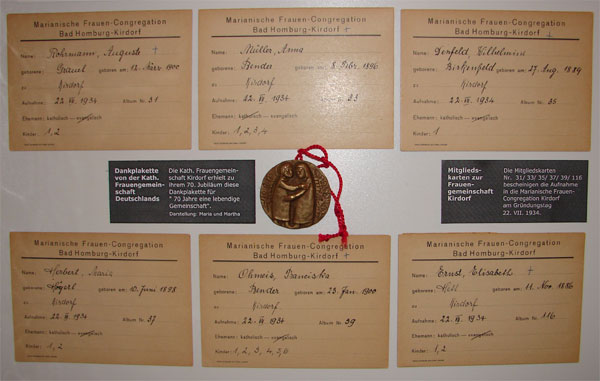 Marianische Frauen-Congregation
Bad Homburg-Kirdorf
Name: Rohrmann, Auguste +
geborene: Braul geboren am: 12. März 1900
zu Kirdorf
Aufnahme: 22. VII. 1934 Album Nr. 31
Ehemann: katholisch — evangelisch
Kinder: 1, 2
Marianische Frauen-Congregation
Bad Homburg-Kirdorf +
Name: Müller, Anna
geborene: Bender geboren am: 8. Febr. 1896
zu Kirdorf
Aufnahme: 22. VII. 1934 Album Nr. 33
Ehemann: katholisch — evangelisch
Kinder: 1, 2, 3, 4
Marianische Frauen-Congregation
Bad Homburg-Kirdorf +
Name: Denfeld, Wilhelmine
geborene: Birkenfeld geboren am: 27. Aug. 1889
zu Kirdorf
Aufnahme: 22. VII. 1934 Album Nr. 35
Ehemann: katholisch — evangelisch
Kinder: 1
Dankplakette
von der Kath.
Frauengemein-
schaft
Deutschlands
Die Kath. Frauengemein-
schaft Kirdorf erhielt zu
ihrem 70. Jubiläum diese
Dankplakette für
" 70 Jahre eine lebendige
Gemeinschaft".
Darstellung: Maria und Martha
Mitglieds-
karten zur
Frauen-
gemeinschaft
Kirdorf
Die Mitgliedskarten
Nr. 31/ 33/ 35/ 37/ 39/ 116
bescheinigen die Aufnahme
in die Marianische Frauen-
Congregation Kirdorf
am Gründungstag
22. VII. 1934.
Marianische Frauen-Congregation
Bad Homburg-Kirdorf
Name: Herbert, Maria
geborene: geboren am: 10. Juni 1898
zu Kirdorf
Aufnahme: 22. VII. 1934 Album Nr. 37
Ehemann: katholisch — evangelisch
Kinder: 1, 2
Marianische Frauen-Congregation
Bad Homburg-Kirdorf +
Name: Ohmeis, Franziska
geborene: Bender geboren am: 23. Jan. 1900
zu Kirdorf
Aufnahme: 22. VII. 1934 Album Nr. 39
Ehemann: katholisch — evangelisch
Kinder: 1, 2, 3, 4, 5, 6
Marianische Frauen-Congregation
Bad Homburg-Kirdorf
Name: Ernst, Elisabeth +
geborene: Hett geboren am: 11. Nov. 1886
zu Kirdorf
Aufnahme: 22. VII. 1934 Album Nr. 116
Ehemann: katholisch — evangelisch
Kinder: 1, 2